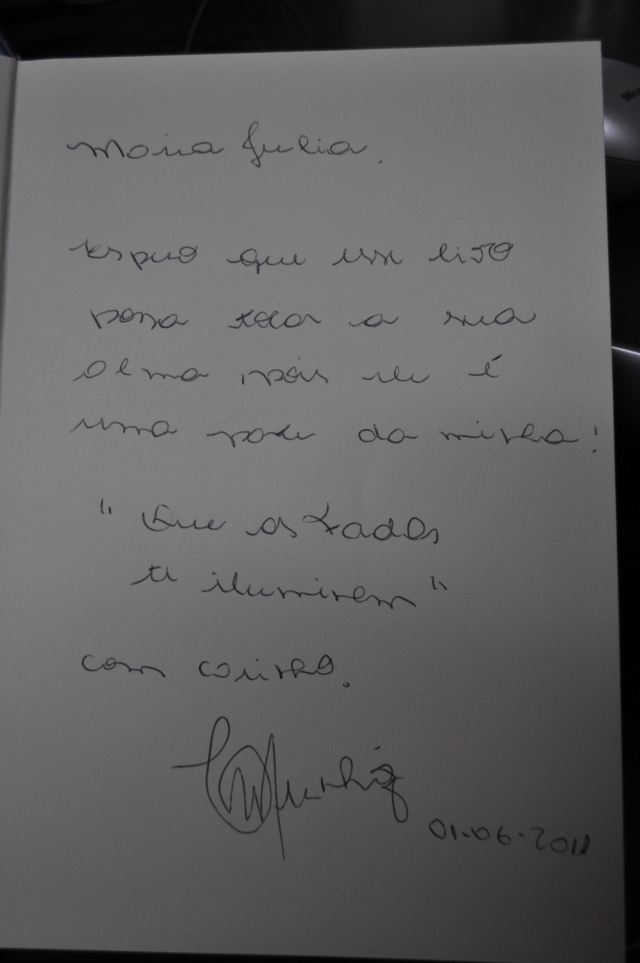 Maria Julia.
Espero que esse livro
possa tocar a sua
alma pois ele é
uma parte da minha!
"Que as fadas
te iluminem"
com carinho.
01-06-2011